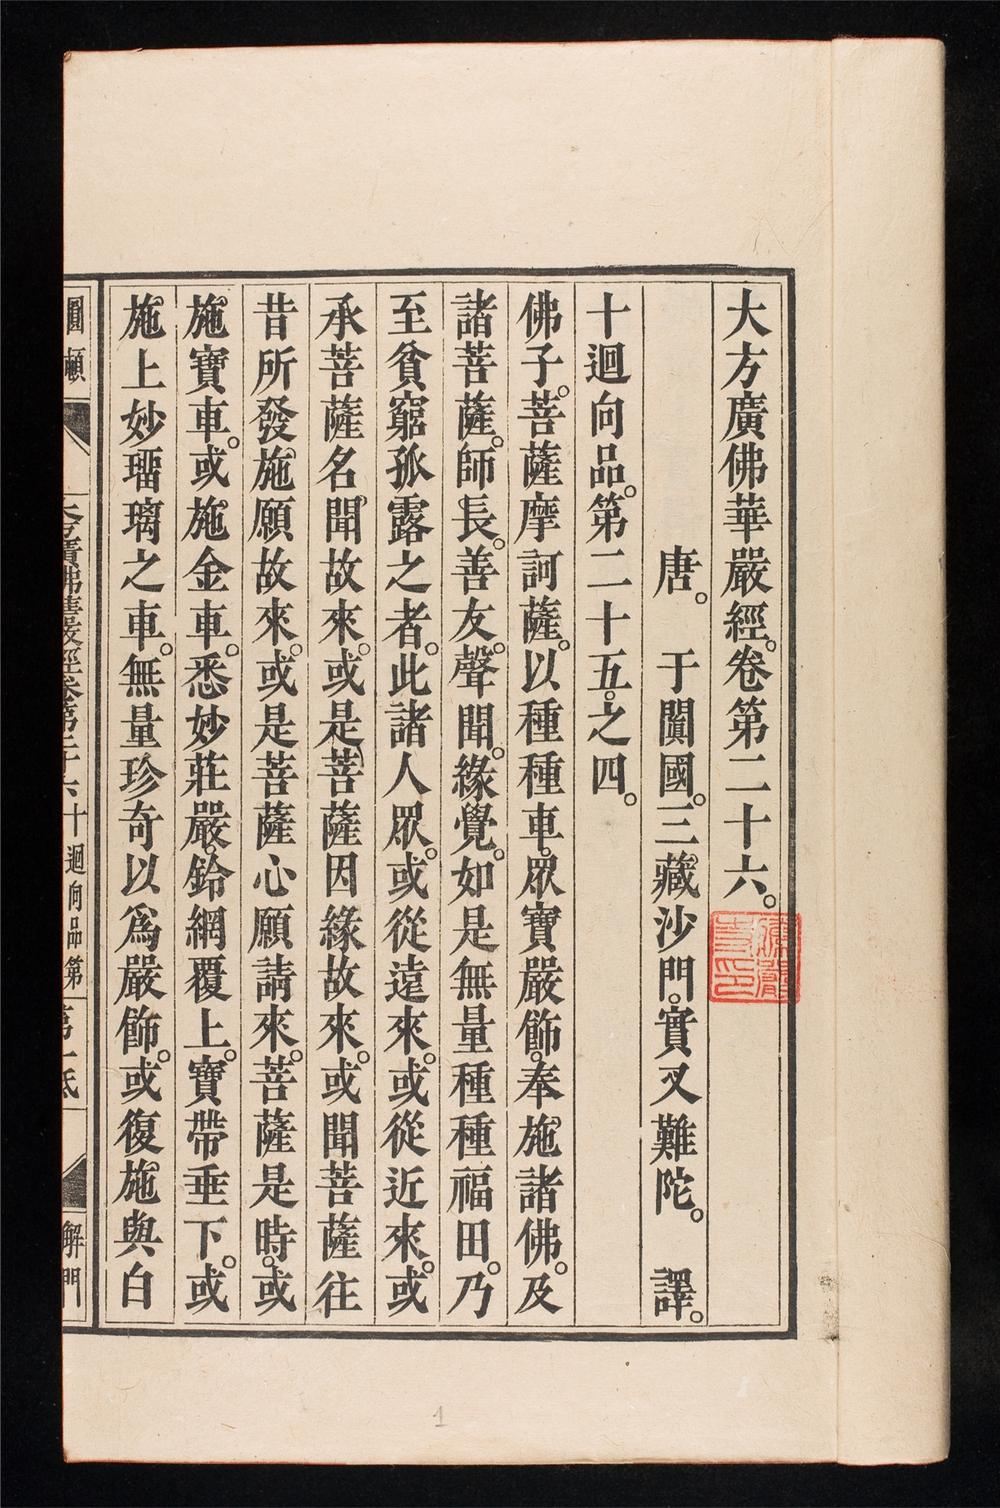 大方廣佛華嚴經。卷第二十六。
唐。于闐國。三藏沙門。實叉難陀。譯。
十迴向品。第二十五。之四。
佛子。菩薩摩訶薩。以種種車。眾寶嚴飾。奉施諸佛。及
諸菩薩。師長。善友。聲聞。緣覺。如是無量種種福田。乃
至貧窮孤露之者。此諸人眾。或從遠來。或從近來。或
承菩薩名聞故來。或是菩薩因緣故來。或聞菩薩往
昔所發施願故來。或是菩薩心願請來。菩薩是時。或
施寶車。或施金車。悉妙莊嚴。鈴網覆上。寶帶垂下。或
施上妙瑠璃之車。無量珍奇以為嚴飾。或復施與白
圓頓 大方廣佛華嚴經卷第二十六 十迴向品第 第一紙 解門